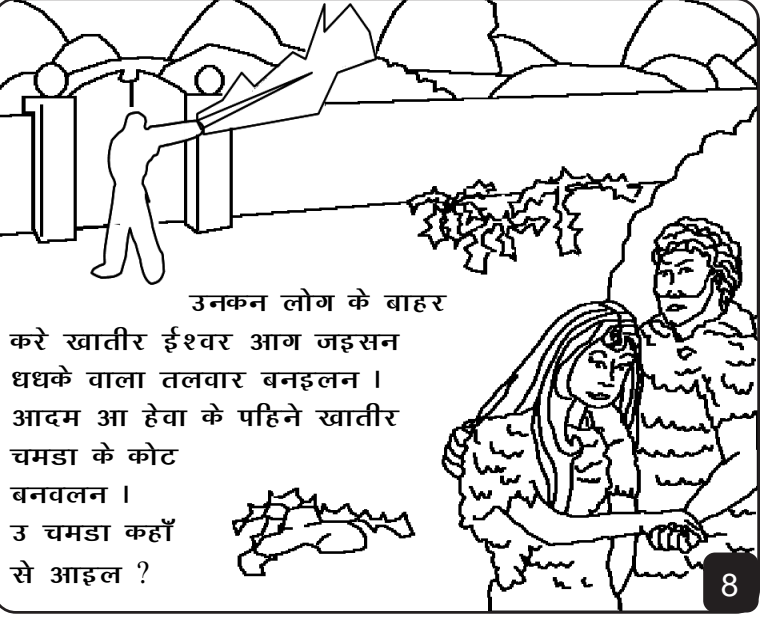 उनकन लोग के बाहर
करे खातीर ईश्वर आग जइसन
धधके वाला तलवार बनइलन ।
आदम आ हेवा के पहिने खातीर
चमडा के कोट
बनवलन ।
उ चमडा कहाँ
से आइल ?
8